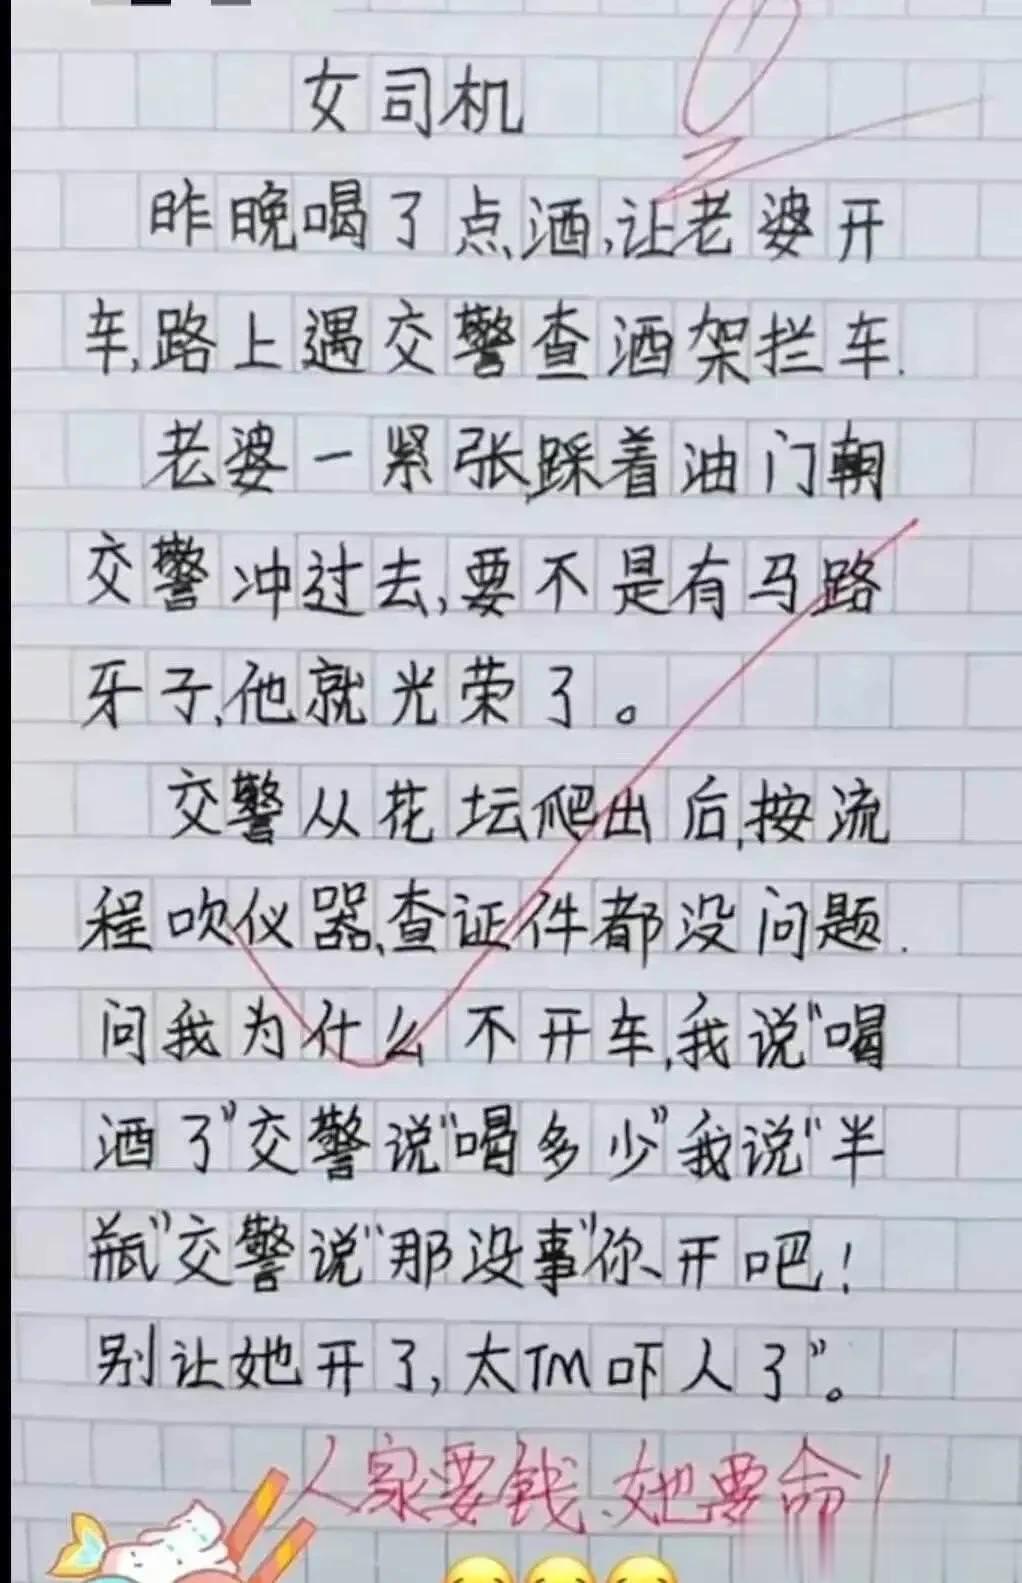 女司机
昨晚喝了点酒,让老婆开
车,路上遇交警查酒架拦车.
老婆一紧张,踩着油门朝
交警冲过去,要不是有马路
牙子,他就光荣了。
交警从花坛爬出后,按流
程吹仪器,查证件都没问题.
问我为什么不开车,我说“喝
酒了”交警说“喝多少”我说“半
瓶”交警说“那没事”你开吧!
别让她开了,太TM吓人了”。
人家要钱、她要命!